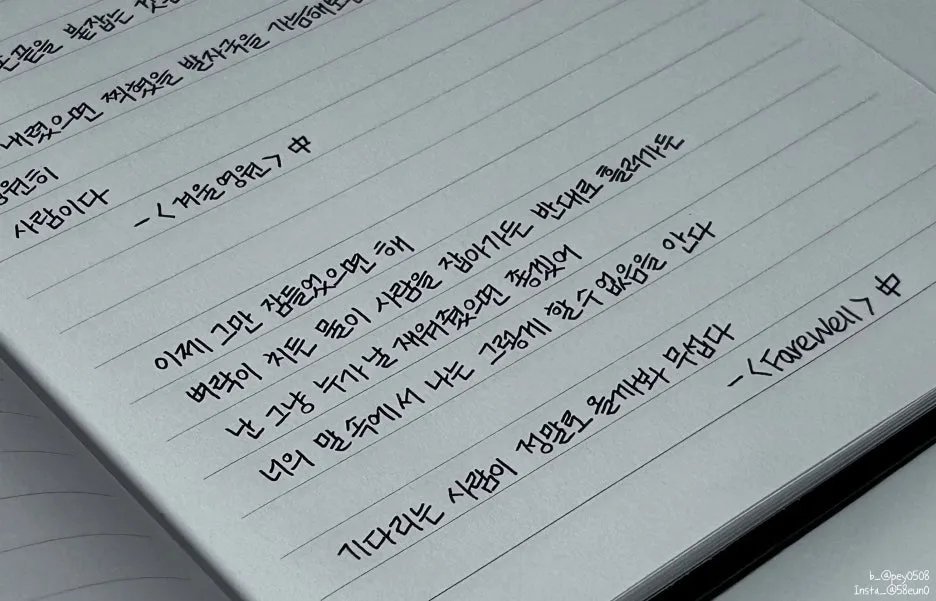 붙잡는
내렸으면 찍혔을 발자국을 가늠해보는
사람이다
-<겨울영원> 中
이제 그만 잠들었으면 해
벼락이 치든 물이 사람을 잡아가든 반대로 흘러가든
난 그냥 누가 날 재워줬으면 좋겠어
너의 말 속에서 나는 그렇게 할 수 없음을 안다
기다리는 사람이 정말로 올까봐 무섭다
-<FareWell> 中
b_@pey0508
Insta_@58eun0